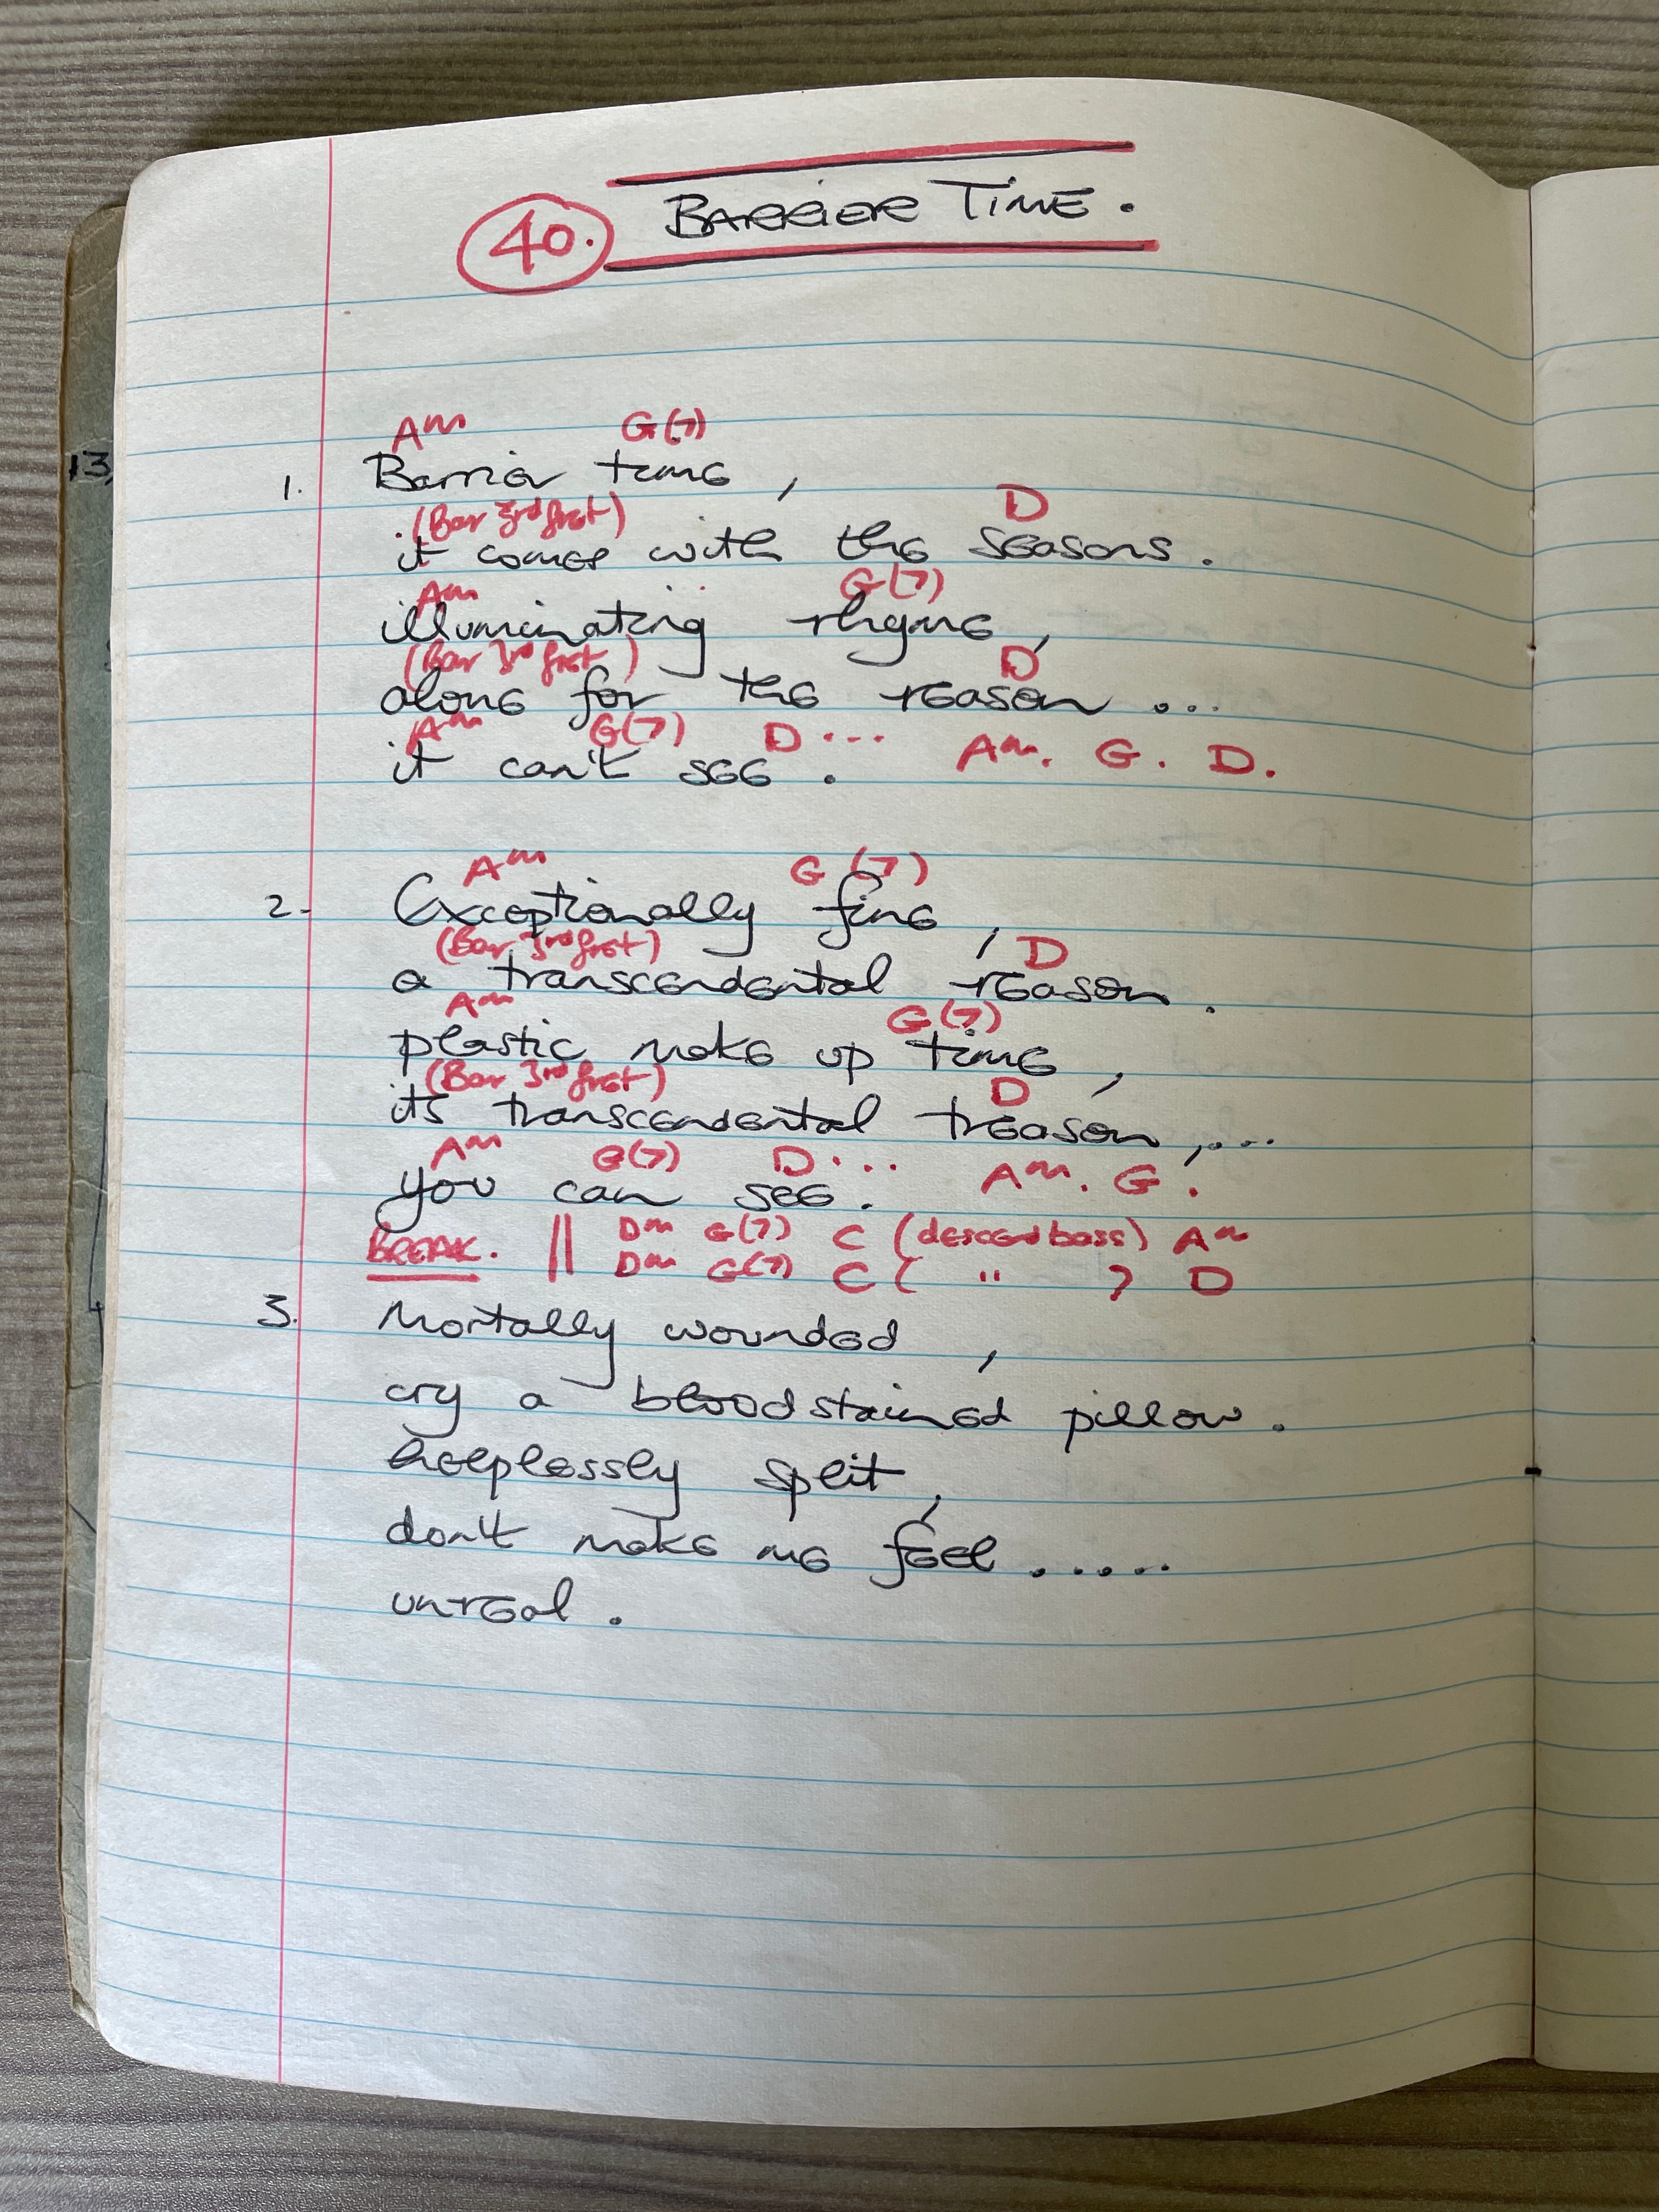 40. BARRIER TIME.
Am G(7)
1. Barrier time,
(Bar 3rd fret) D
it comes with the seasons.
Am G(7)
illuminating rhyme,
(Bar 3rd fret) D
along for the reason ...
Am G(7) D... Am. G. D.
it can't see.
Am G(7)
2. Exceptionally fine,
(Bar 3rd fret) D
a transcendental reason.
Am G(7)
plastic make up time,
(Bar 3rd fret) D
its transcendental treason,...
Am G(7) D... Am. G.
you can see.
BREAK. || Dm G(7) C (descend bass) Am
Dm G(7) C ( " ) D
3. Mortally wounded,
cry a bloodstained pillow.
helplessly split,
don't make me feel .....
unreal.
13,